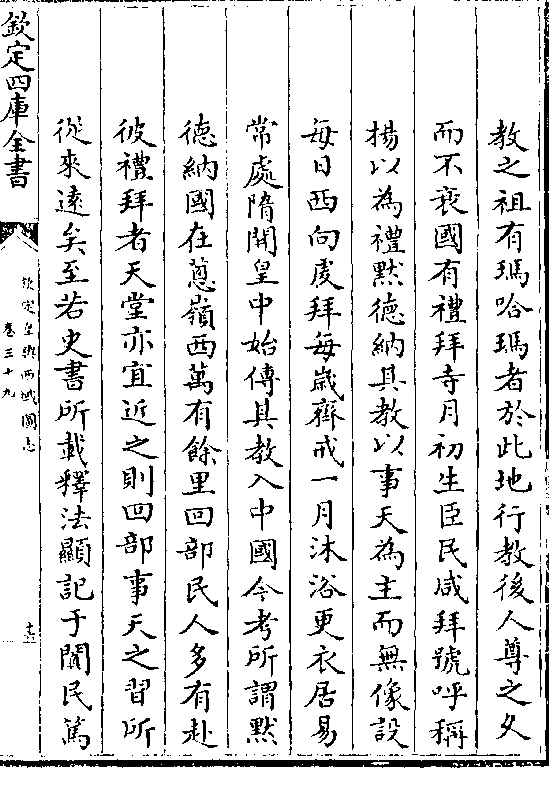 教之祖有瑪哈瑪者於此地行教後人尊之久
而不衰國有禮拜寺月初生臣民咸拜號呼稱
揚以為禮默德納其教以事天為主而無像設
每日西向䖍拜每嵗齊戒一月沐浴更衣居易
常處隋開皇中始傳其教入中國今考所謂默
德納國在蔥嶺西萬有餘里回部民人多有赴
彼禮拜者天堂亦宜近之則回部事天之習所
從來逺矣至若史書所載釋法顯記于闐民篤
欽定四庫全書
欽定皇輿西域圖志
卷三十九